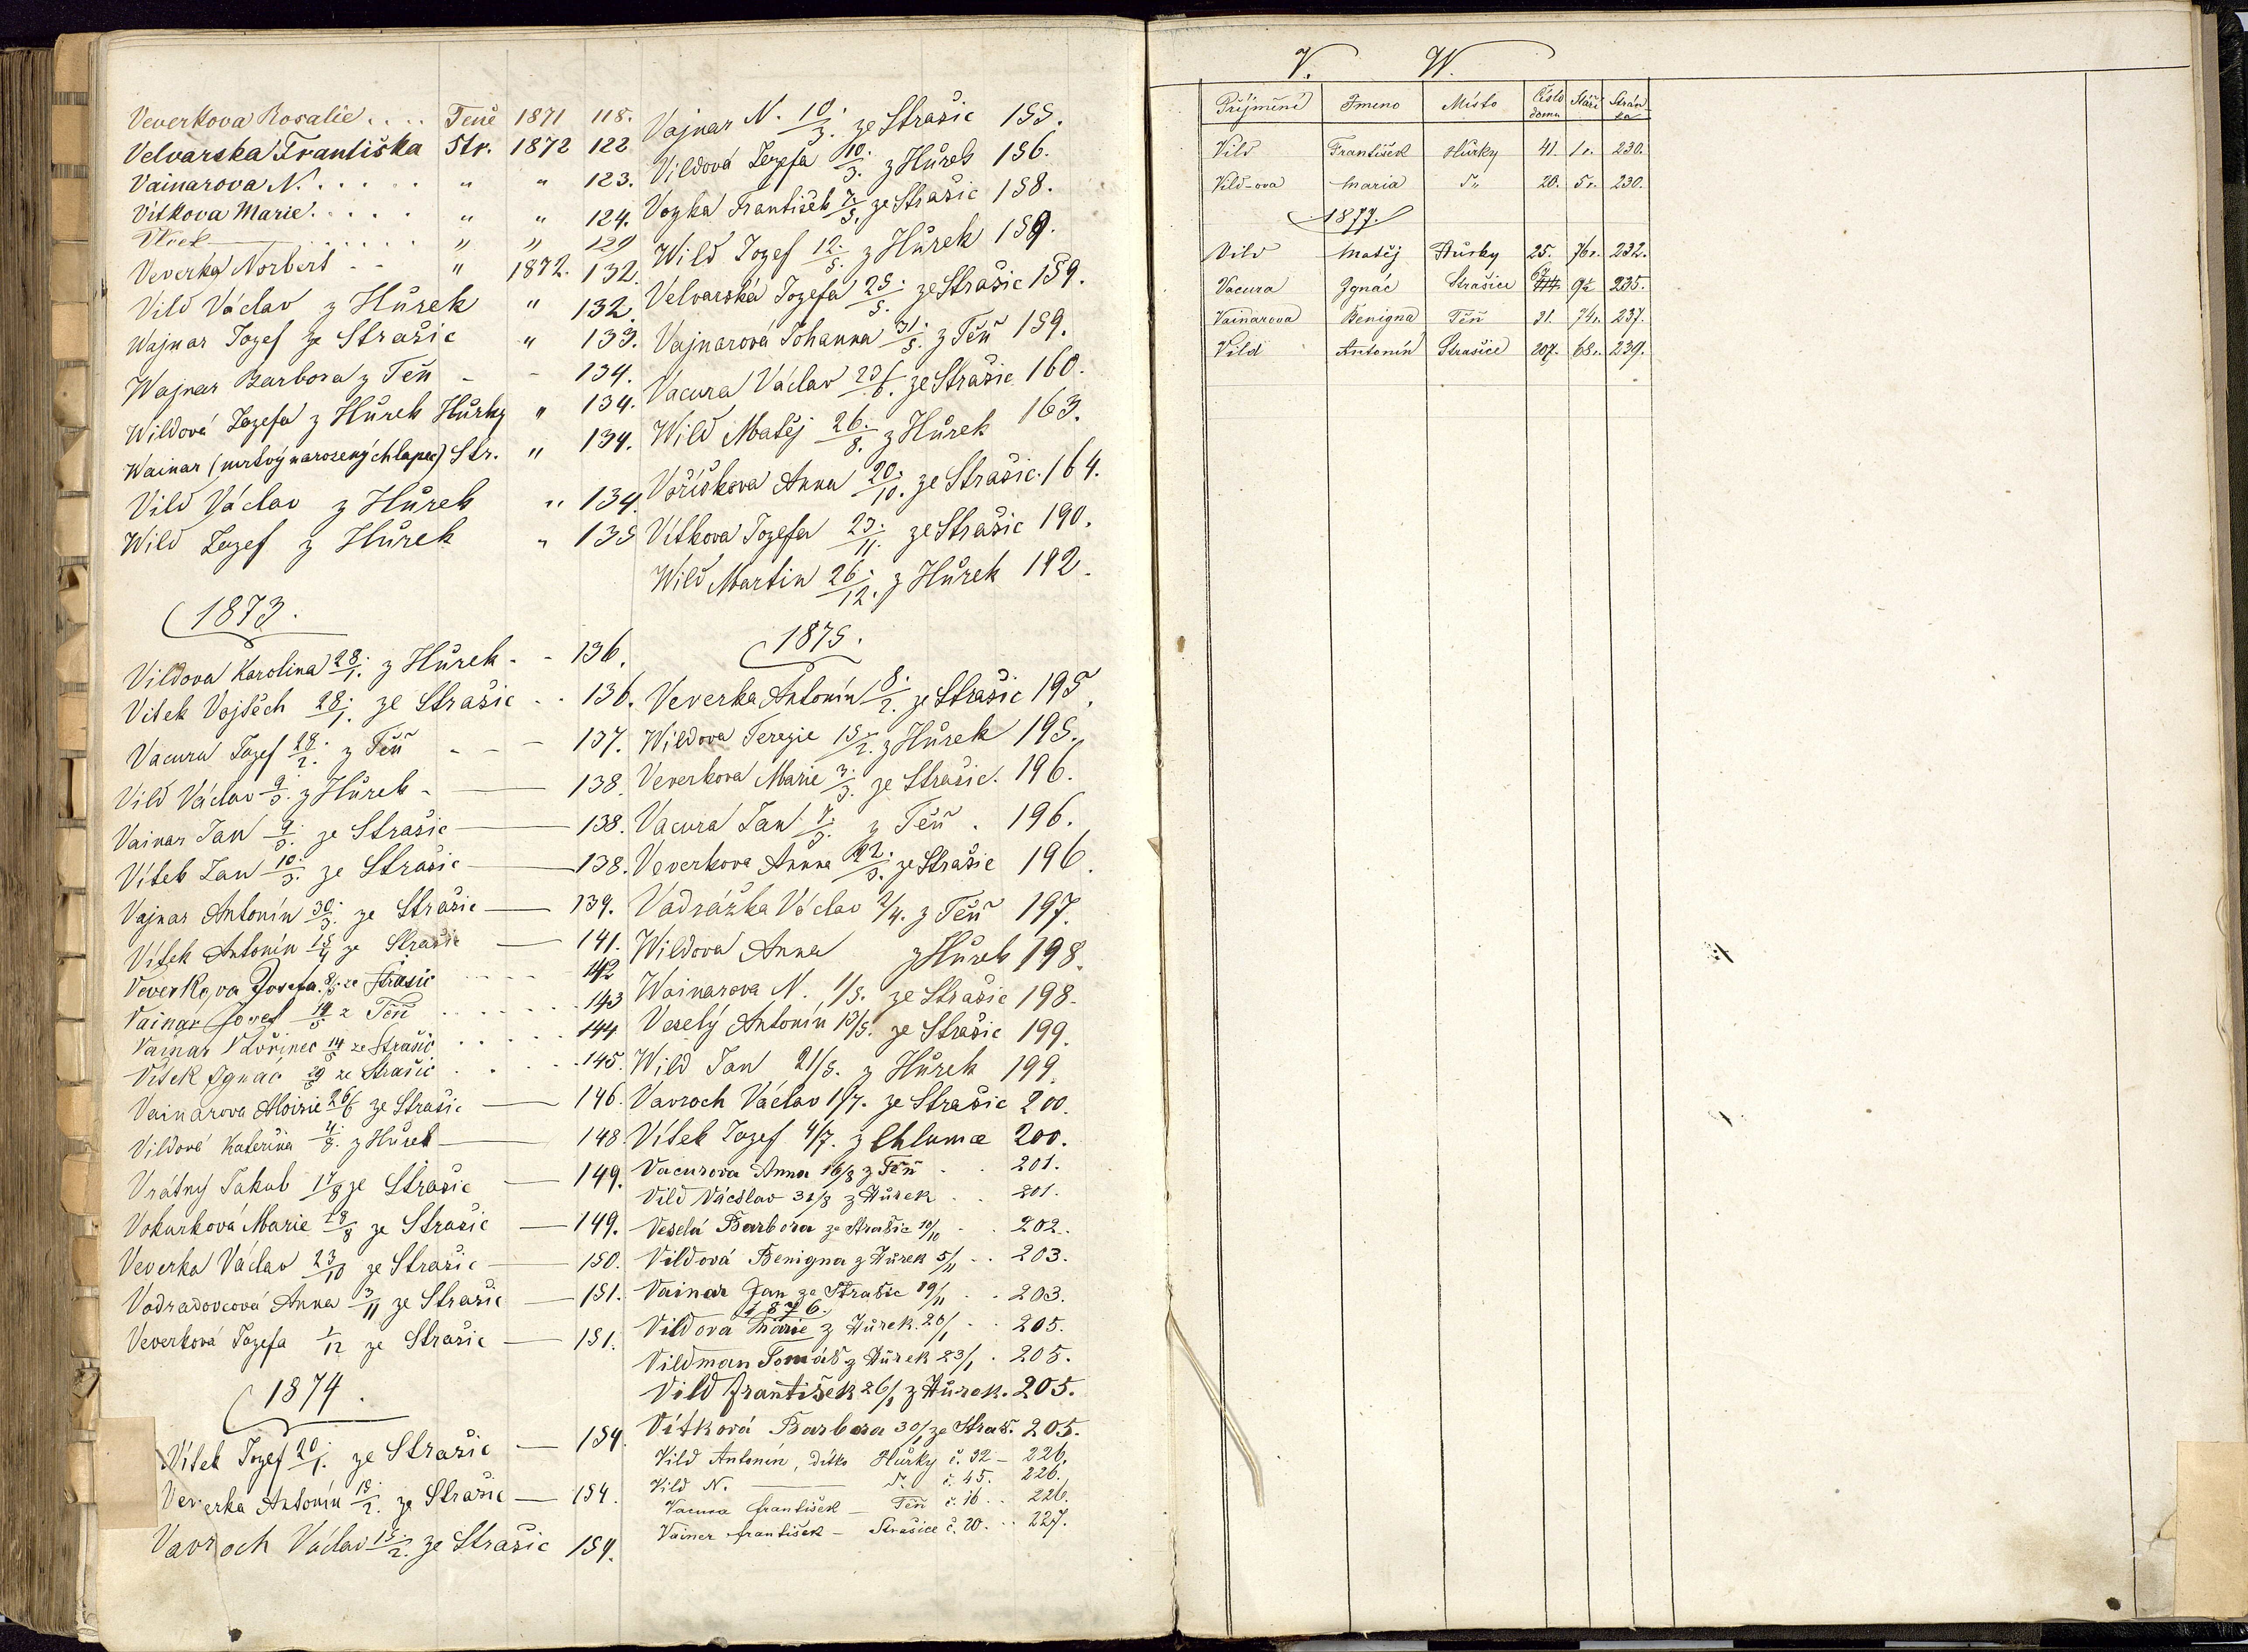 Veverkova Rosalie . . . . Teně 1871 118.
Velvarska Františka Str. 1872 122
Vainarova N. . . . . . " " 123.
Vítkova Marie. . . . . " " 124.
. . . . . . " " 129
Veverka Norbert - - " 1872. 132.
Vild Václav z Hůrek " 132.
Wajnar Jozef ze Strašic " 133.
Wajnar Barbora z Těň - - 134.
Wildová Jozefa z Hůrek Hůrky " 134.
Wainar (mrtvý narozený chlapec) Str. " 134.
Vild Václav z Hůrek " 134.
Wild Jozef z Hůrek " 135
1873.
Vildova Karolina 28./1. z Hůrek - - 136.
Vitek Vojtěch 28./1. ze Strašic - - 136.
Vacura Jozef 28./2. z Těň - - - 137.
Vild Václav 9./3. z Hůrek - — 138.
Vainar Jan 9./3. ze Strašic — 138.
Vítek Jan 10./3. ze Strašic — 138.
Vajnar Antonín 30./3. ze Strašic — 139.
Vítek Antonín 15/4 ze Strašic — 141.
Veverkova Josefa 8/5. ze Strašic - - - - 142
Vainar Josef 14/5 z Těň . . . . . . 143
Vainar Vavřinec 14/5 ze Strašic . . . . . 144
Vítek Ignac 29/5 ze Strašic . . . . 145.
Vainarova Aloisie 26/6 ze Strašic — 146.
Vildová Kateřina 4./8. z Hůrek — 148
Vrátný Jakub 17/8 ze Strašic — 149.
Vokurková Marie 28/8 ze Strašic — 149.
Veverka Václav 23/10 ze Strašic — 150.
Vodradovcová Anna 3/11 ze Strašic — 151.
Veverková Jozefa 1/12 ze Strašic — 151.
1874.
Vítek Jozef 20./1. ze Strašic — 154.
Veverka Antonín 15./2. ze Strašic — 154.
Vavroch Václav 15./2. ze Strašic 154.
Vajnar N. 10./3. ze Strašic 155.
Vildová Jozefa 10./3. z Hůrek 156.
Vozka František 7./5. ze Strašic 158.
Wild Jozef 12./5. z Hůrek 159.
Velvarská Jozefa 25./5. ze Strašic 159.
Vajnarová Johanna 31./5. z Těň 159.
Vacura Václav 23/6. ze Strašic 160.
Wild Matěj 26./8. z Hůrek 163.
Voříškova Anna 20./10. ze Strašic. 164.
Vítkova Jozefa 23./11. ze Strašic 190.
Wild Martin 26./12. z Hůrek 192.
1875.
Veverka Antonín 8./2. ze Strašic 195.
Wildova Terezie 15./2. z Hůrek 195.
Veverkova Marie 3./3. ze Strašic. 196.
Vacura Jan 7./3. z Těň . 196.
Veverkova Anna 22./3. ze Strašic 196.
Vadrážka Václav 2/4. z Těň 197.
Wildova Anna z Hůrek 198.
Wainarova N. 1/5. ze Strašic 198.
Veselý Antonín 13/5. ze Strašic 199.
Wild Jan 21/5. z Hůrek 199.
Vavroch Václav 1/7. ze Strašic 200.
Vítek Jozef 4/7. z Chlumce 200.
Vacurova Anna 16/8 z Těň . . 201.
Vild Václav 31/8 z Hůrek . . 201.
Veselá Barbora ze Strašic 10/10 . . 202.
Vildová Benigna z Hůrek 5/11 . . 203.
Vainar Jan ze Strašic 19/11 . . 203.
1876.
Vildova Marie z Hůrek. 20/1 . . 205.
Vildman Tomáš z Hůrek 23/1 . 205.
Vild František 26/1 z Hůrek. 205.
Vítková Barbora 30/1 ze Straš. 205.
Vild Antonín, dítko Hůrky č. 32 - 226.
Vild N. — č. 45. 226.
Vacura František — Těň č. 16 . . 226.
Vainer František - Strašice č. 20. . . 227.
V. W.
Příjmení Jmeno Místo Číslo domu Stáří Stránka
Vild František Hůrky 41. 1r. 230.
Vild-ova Maria D" 20. 5r. 230.
1877.
Vild Matěj Hůrky 25. 76r. 232.
Vacura Ignác Strašice 67 235.
Vainarova Benigna Těň 31. 74r. 237.
Vild Antonín Strašice 207. 68r. 239.